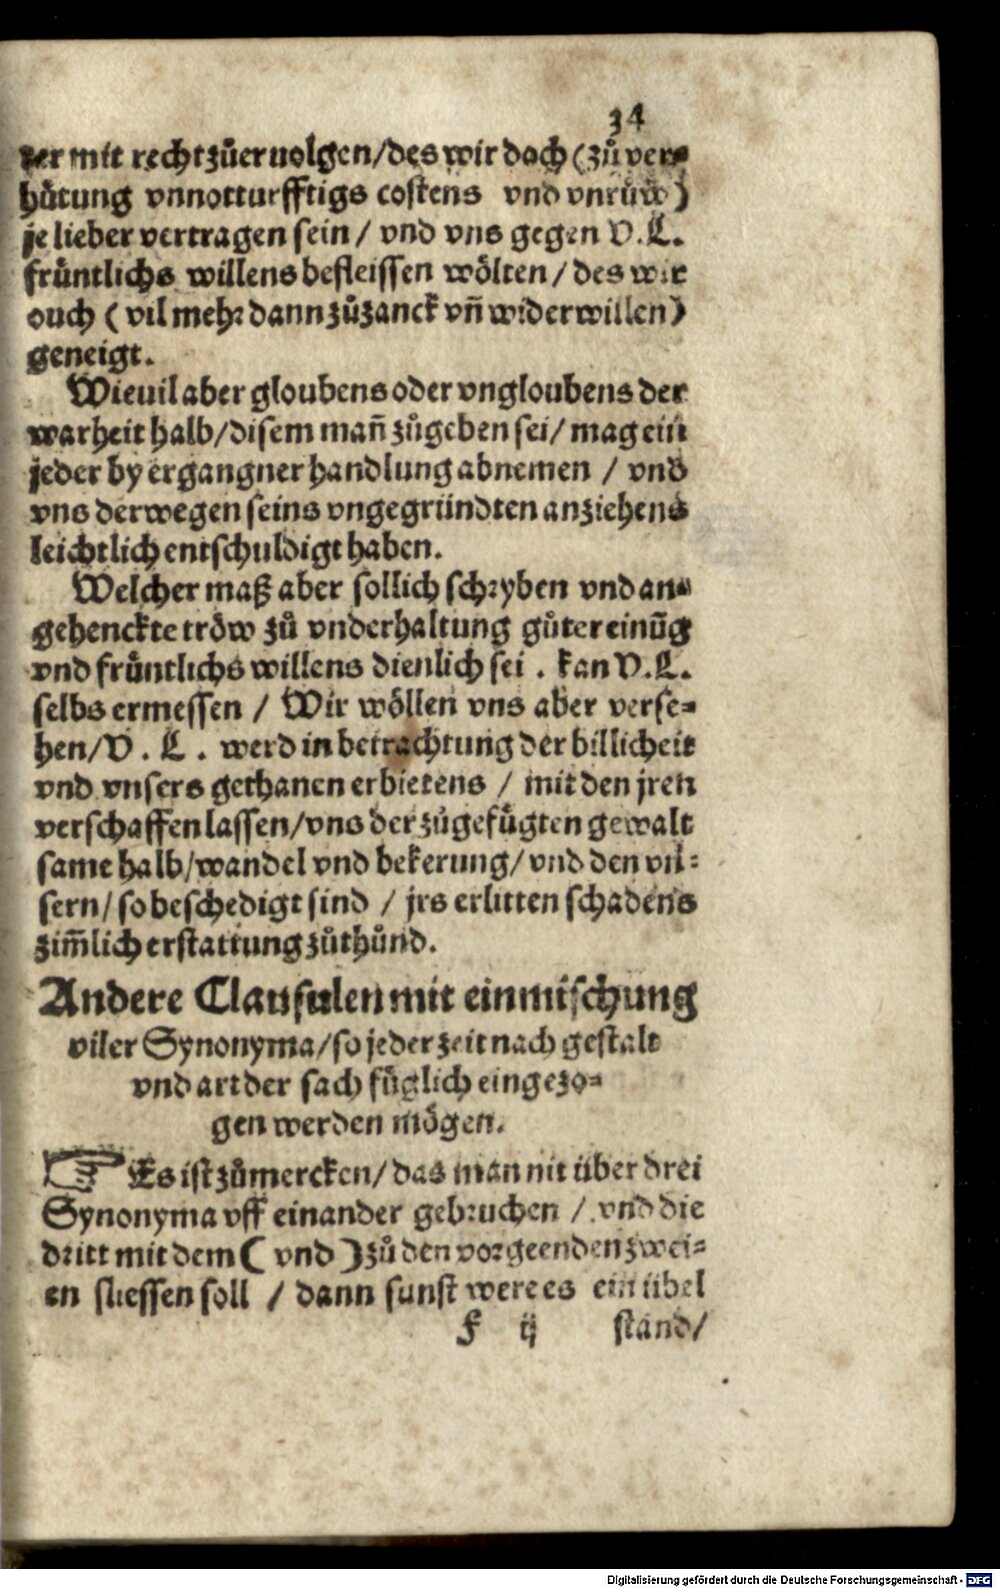 34
ter mit recht zůeruolgen/des wir doch (zů ver⸗
hůtung vnnotturfftigs costens vnd vnrůw)
je lieber vertragen sein / vnd vns gegen V.L.
frůntlichs willens befleissen wölten / des wir
ouch (vil mehr dann zůzanck vñ widerwillen)
geneigt.
Wieuil aber gloubens oder vngloubens der
warheit halb/disem mañ zůgeben sei/ mag ein
jeder by ergangner handlung abnemen / vnd
vns derwegen seins vngegründten anziehens
leichtlich entschuldigt haben.
Welcher maß aber sollich schryben vnd an⸗
gehenckte tröw zů vnderhaltung gůter einũg
vnd frůntlichs willens dienlich sei . kan V.L.
selbs ermessen / Wir wöllen vns aber verse⸗
hen/V . L . werd in betrachtung der billicheit
vnd vnsers gethanen erbietens / mit den jren
verschaffen lassen/vns der zůgefůgten gewalt
same halb/wandel vnd bekerung/vnd den vn⸗
sern/so beschedigt sind / jrs erlitten schadens
zim̃lich erstattung zůthůnd.
Andere Clausulen mit einmischung
viler Synonyma/so jeder zeit nach gestalt
vnd art der sach fůglich eingezo⸗
gen werden mögen.
☞ Es ist zůmercken/das man nit über drei
Synonyma vff einander gebruchen /.vnd die
dritt mit dem ( vnd ) zů den vorgeenden zwei⸗
en sliessen soll / dann sunst were es ein übel
f ij stand/
Digitalisierung gefördert durch die Deutsche Forschungsgemeinschaft - DFG